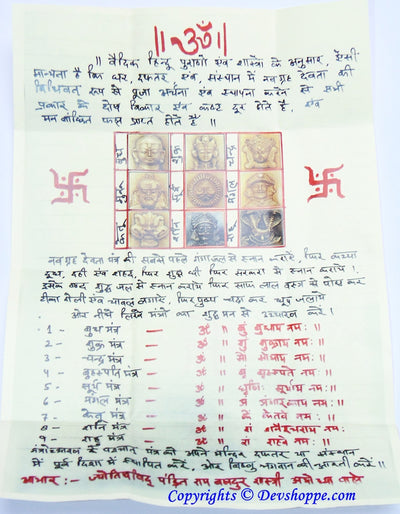 ॥ ॐ ॥
॥ वैदिक हिन्दु पुराणो एवं शास्त्रो के अनुसार, ऐसी
मान्यता है कि घर, दफ्तर एवं, संस्थान में नवग्रह देवता की
विधिवत रूप से पूजा अर्चना एवं स्थापना करने से सभी
प्रकार के दोष विकार एवं कष्ट दूर होते है, एवं
मन वांछित फल प्राप्त होते है ॥
बुध शुक्र चन्द्र
सूर्य मंगल
केतु शनि राहु
नवग्रह देवता यंत्र को सबसे पहले गंगाजल से स्नान कराऐं, फिर कच्चा
दूध, दही एवं शहद, फिर शुद्ध घी फिर शक्कर से स्नान कराये ।
इसके बाद शुद्ध जल से स्नान कराऐ फिर साफ लाल वस्त्र से पोंछ कर
टीका रोली एवं चावल लगाऐं, फिर पुष्प चढ़ा कर धूप जलाये
और नीचे लिखे मंत्रो का शुद्ध मन से उच्चारण करें ।
1 - बुध मंत्र — ॐ बुं बुधाय नमः ॥
2 - शुक्र मंत्र — ॐ शुं शुक्राय नमः ॥
3 - चन्द्र मंत्र — ॐ सों सोमाय नमः ॥
4 - बृहस्पति मंत्र — ॐ बृं बृहस्पते नमः ॥
5 - सूर्य मंत्र — ॐ घृणिः सूर्याय नमः ॥
6 - मंगल मंत्र —
7 - केतु मंत्र — ॐ कें केतवे नमः ॥
8 - शनि मंत्र — ॐ शं शनैश्चराय नमः ॥
9 - राहु मंत्र — ॐ रां राहवे नमः ॥
मंत्रोच्चारण के पश्चात यंत्र को अपने मन्दिर दफ्तर या संस्थान
में पूर्व दिशा में स्थापित करें, और विष्णु भगवान की आरती करें ॥
आभार :- ज्योतिषविद् पंडित राम बहादुर शास्त्री
Copyrights © Devshoppe.com